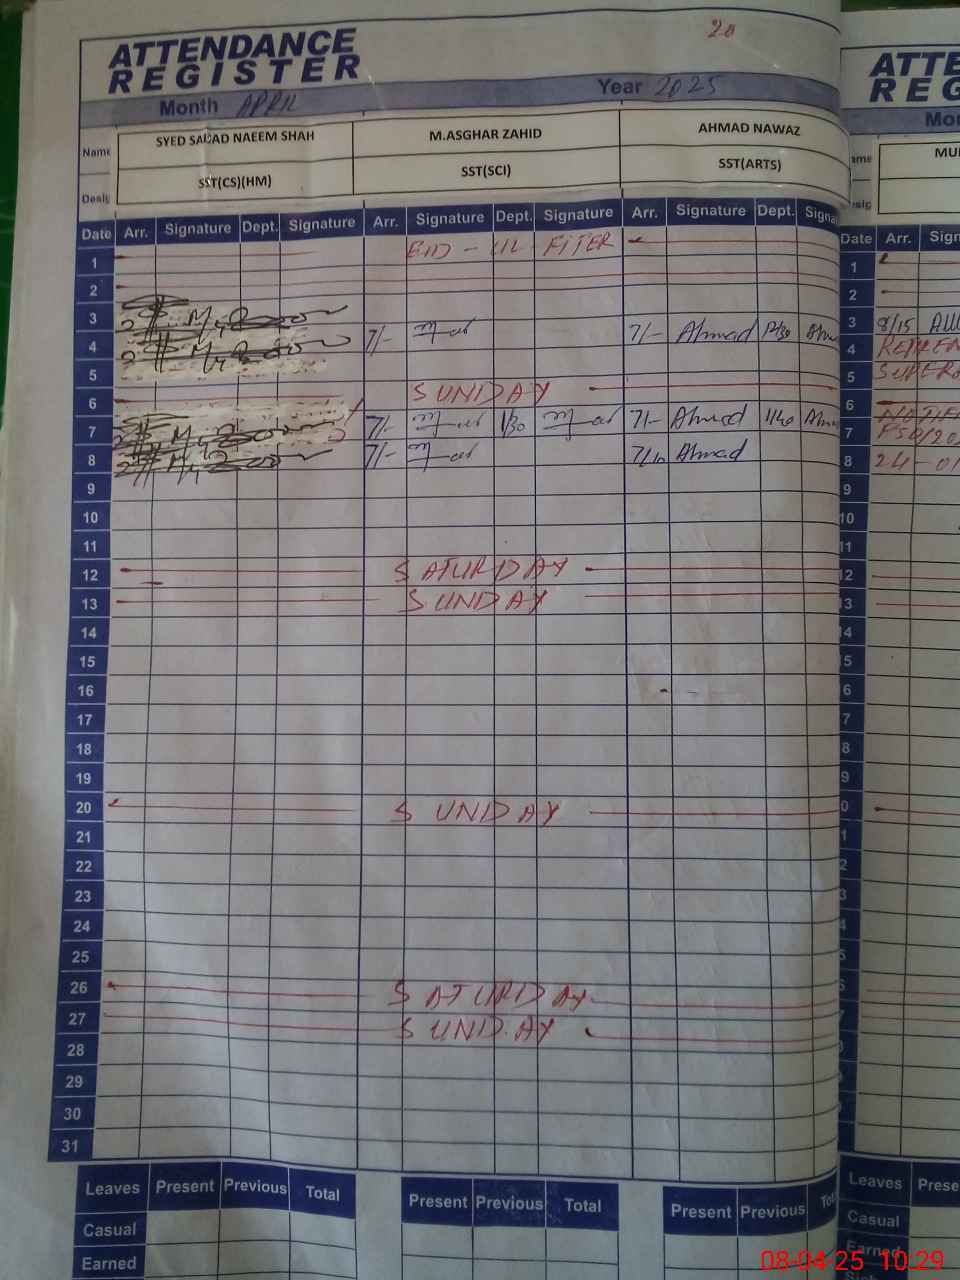 20
ATTENDANCE
REGISTER
Month APRIL Year 2025
Name SYED SAJJAD NAEEM SHAH M.ASGHAR ZAHID AHMAD NAWAZ
Desig SST(CS)(HM) SST(SCI) SST(ARTS)
Date Arr. Signature Dept. Signature Arr. Signature Dept. Signature Arr. Signature Dept. Signa
1 EID - UL - FITER
2
3
4 7/- 7/- Ahmad 12/30 Ahm
5
6 SUNDAY
7 7/- 1/30 7/- Ahmad 11/40 Ahm
8 7/- 7/10 Ahmad
9
10
11
12 SATURDAY
13 SUNDAY
14
15
16
17
18
19
20 SUNDAY
21
22
23
24
25
26 SATURDAY
27 SUNDAY
28
29
30
31
Leaves Present Previous Total Present Previous Total Present Previous Tot
Casual
Earned
ATTE
REG
Mo
ame MU
esig
Date Arr. Sign
1
2
3 8/15
4
5
6
7
8 24-01
9
10
11
12
13
14
5
6
7
8
9
0
1
2
3
4
5
6
7
8
Leaves Prese
Casual
Earned
08-04-25 10:29